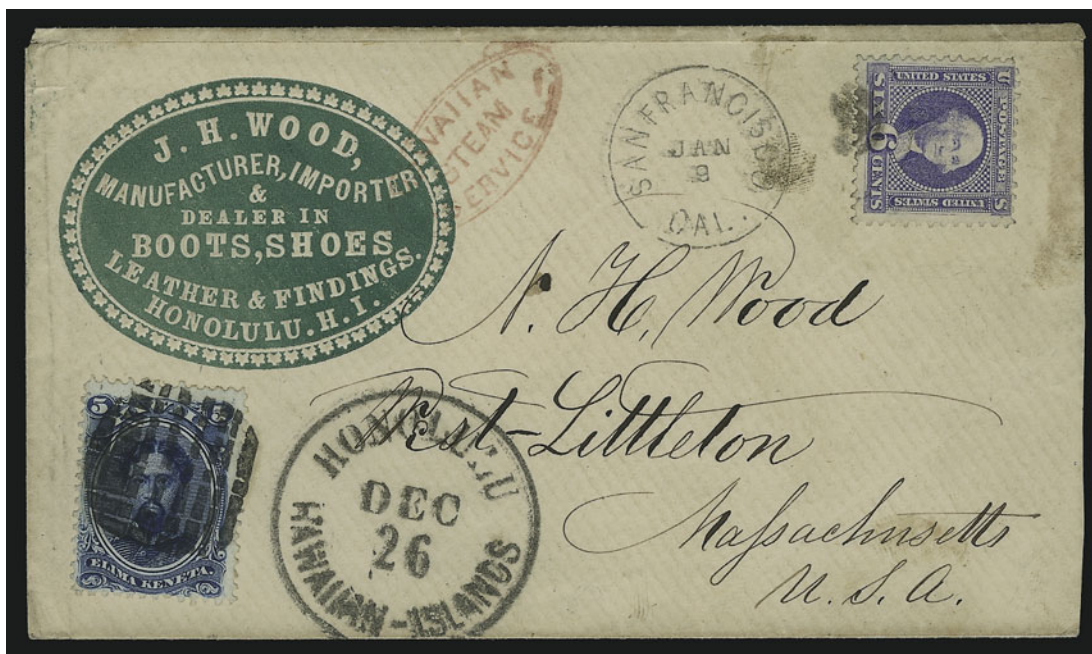 J. H. WOOD,
MANUFACTURER, IMPORTER
&
DEALER IN
BOOTS, SHOES
LEATHER & FINDINGS.
HONOLULU. H. I.
WAIIAN
STEAM
SERVICE
SAN FRANCISCO
JAN
8
CAL.
U.S. POSTAGE
UNITED STATES
SIX 6 CENTS
UNITED STATES
N. H. Wood
West-Littleton
Massachusetts
U. S. A.
5
ELIMA KENETA.
HONOLULU
DEC
26
HAWAIIAN-ISLANDS